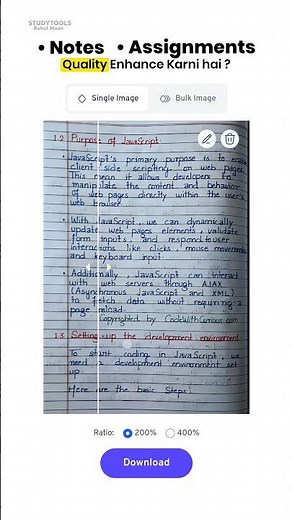 STUDYTOOLS
Rahul Maan
• Notes • Assignments
Quality Enhance Karni hai ?
Single Image
Bulk Image
1.2 Purpose of JavaScript
• JavaScript's primary purpose is to enable
client side scripting on web pages.
This mean it allows developers to
manipulate the content and behavior
of web pages directly within the user's
web browser.
• With JavaScript, we can dynamically
update web pages elements, validate
form inputs, and respond to user
interactions like clicks, mouse movements
and keyboard input.
• Additionally, JavaScript can interact
with web servers through AJAX
(Asynchronous JavaScript and XML)
to fetch data without requiring a
page reload.
Copyrighted by CodeWithCurious.com
1.3 Setting up the development environment
To start coding in JavaScript, we
need a development environment set
up.
Here are the basic Steps:
Ratio: 200% 400%
Download